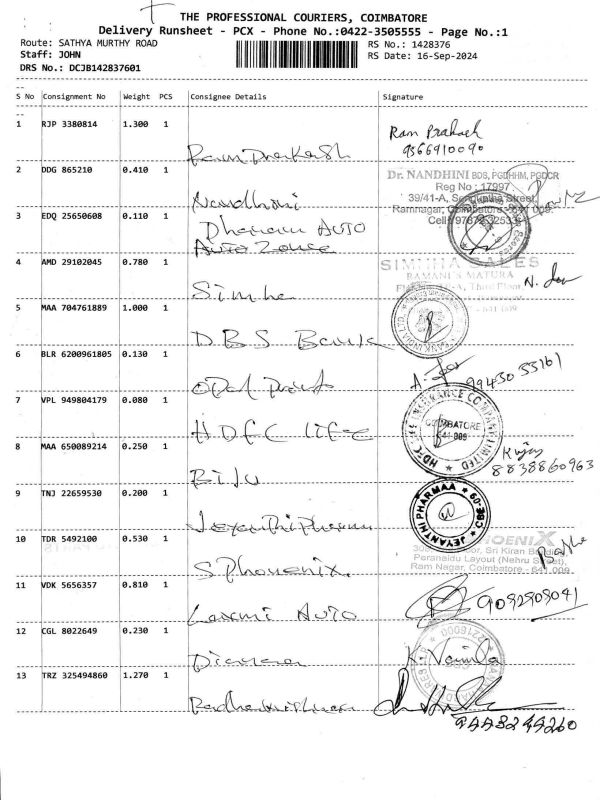 THE PROFESSIONAL COURIERS, COIMBATORE
Delivery Runsheet - PCX - Phone No.:0422-3505555 - Page No.:1
Route: SATHYA MURTHY ROAD
RS No.: 1428376
Staff: JOHN
RS Date: 16-Sep-2024
DRS No.: DCJB142837601
S No Consignment No Weight PCS Consignee Details Signature
1 RJP 3380814 1.300 1 Ram Prakash
Ram Prakash
9566910090
2 DDG 865210 0.410 1 Nandhini
Dr. NANDHINI BDS, PGDHHM, PGDCR
Reg No : 17997
39/41-A, Street,
Ramnagar, Coimbatore - 641 009.
3 EDQ 25650608 0.110 1 AUTO
Auto Zone
4 AMD 29102045 0.780 1 Simha
SIMHHA SALES
RAMANI'S MATURA
Third Floor
5 MAA 704761889 1.000 1 DBS Bank
6 BLR 6200961805 0.130 1 Opal
99430 55161
7 VPL 949804179 0.080 1 HDFC life
HDFC LIFE INSURANCE COMPANY LIMITED
COIMBATORE
641 009
8 MAA 650089214 0.250 1 Biju
8838860963
9 TNJ 22659530 0.200 1 Jeyanthi Pharma
JEYANTHI PHARMAA CBE
10 TDR 5492100 0.530 1 SPhoenix
Sri Kiran
Peranaidu Layout (Nehru Street),
Ram Nagar, Coimbatore - 641 009
11 VDK 5656357 0.810 1 Laxmi Auto
9092909041
12 CGL 8022649 0.230 1
K. Vanila
13 TRZ 325494860 1.270 1